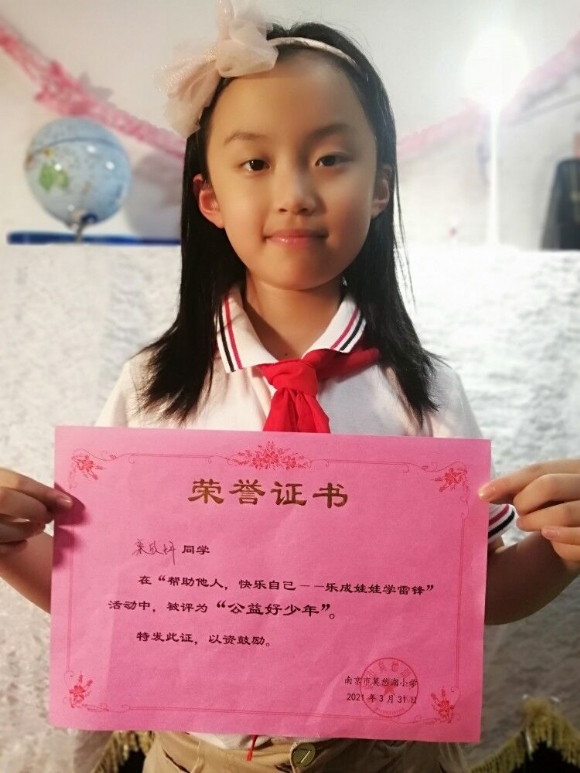 荣誉证书
同学
在“帮助他人，快乐自己——乐成娃娃学雷锋”
活动中，被评为“公益好少年”。
特发此证，以资鼓励。
南京市莫愁湖小学
2021年3月31日